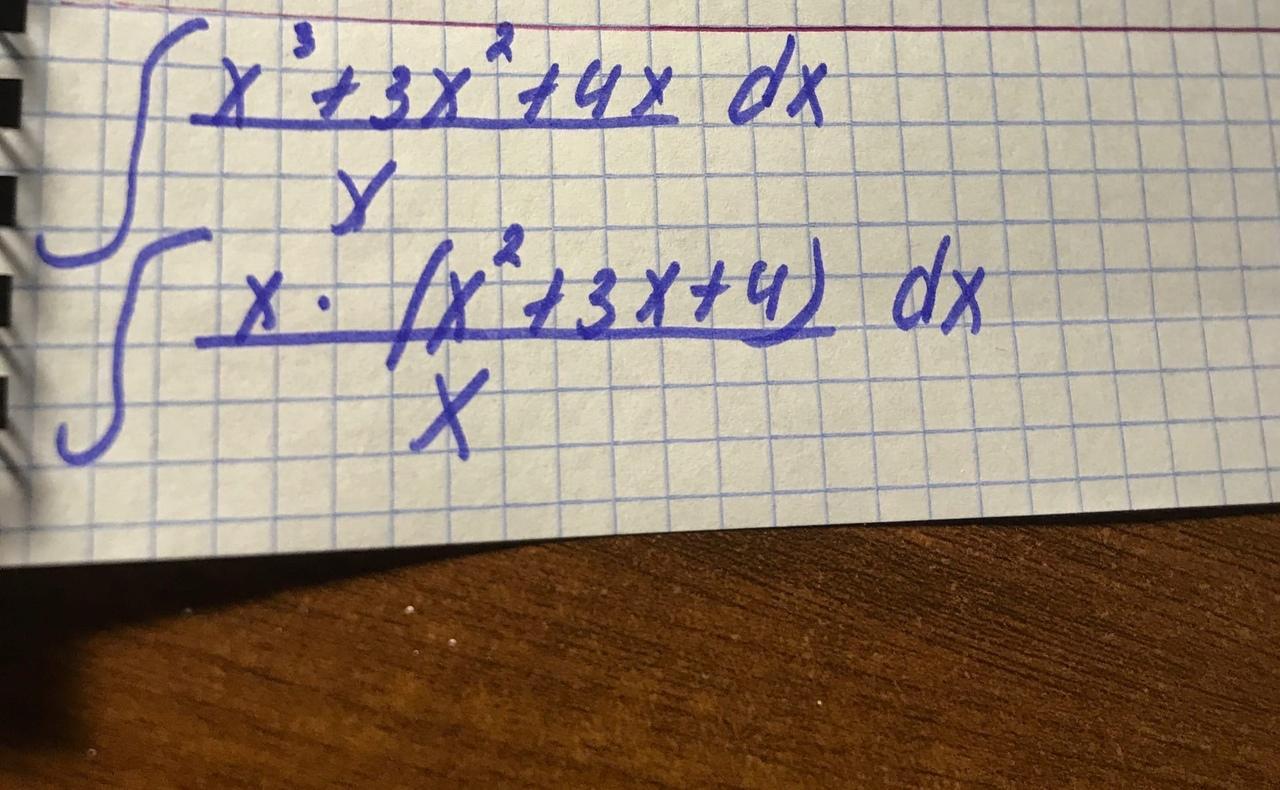 ∫ (x³+3x²+4x)/x dx
∫ (x·(x²+3x+4))/x dx